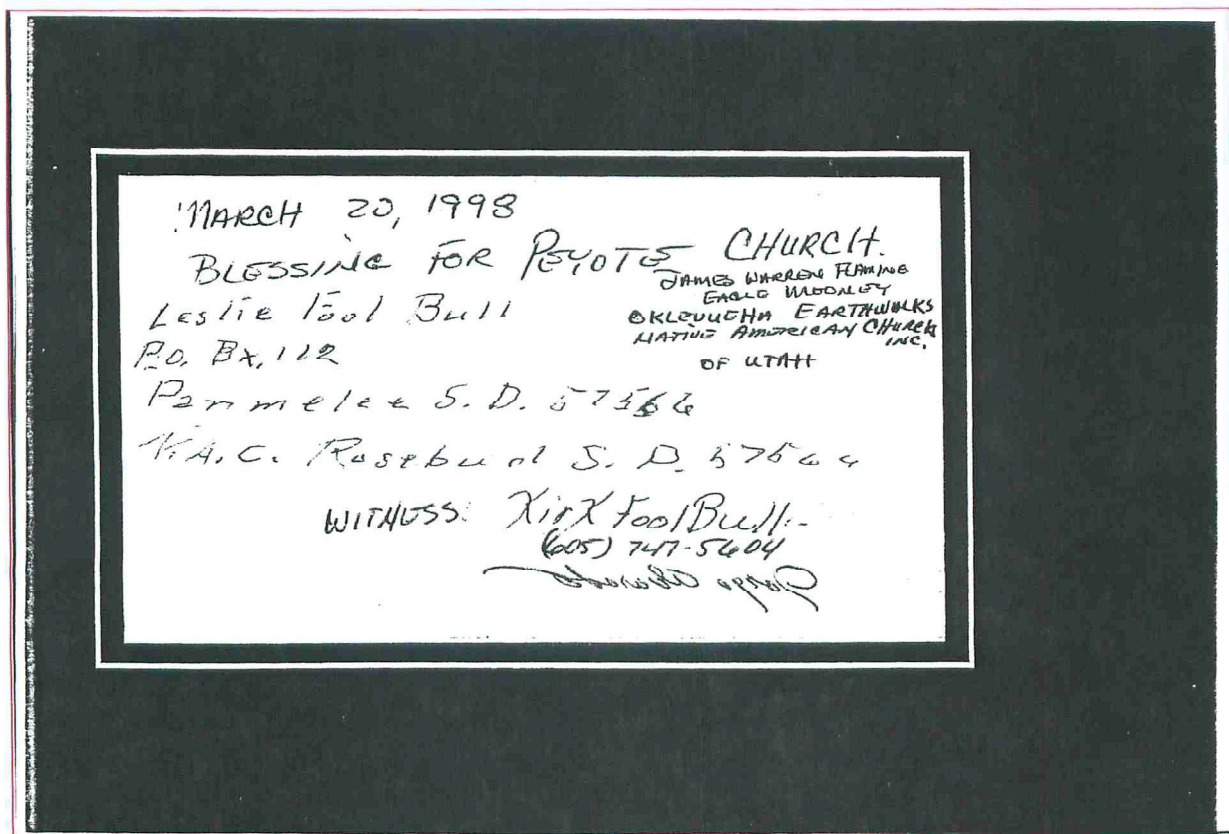 MARCH 20, 1998
BLESSING FOR PEYOTE CHURCH.
JAMES WARREN FLAMING
EAGLE MOONEY
OKLEVUEHA EARTHWALKS
NATIVE AMERICAN CHURCH
INC.
OF UTAH
Leslie Fool Bull
P.O. Bx. 112
Parmelee S.D. 57566
N.A.C. Rosebud S.D.
WITNESS: Kirk Fool Bull
(605) 747-5604